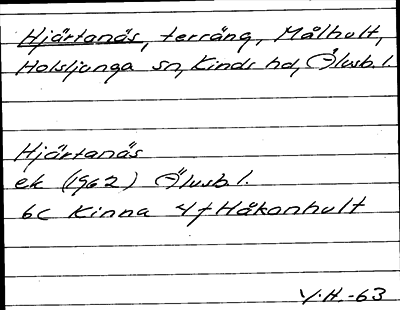 Hjärtanäs, terräng, Målhult,
Holsljunga sn, Kinds hd, Älvsb. l.
Hjärtanäs
ek (1962) Älvsb. l.
6C Kinna 4f Håkanhult
V.H.-63